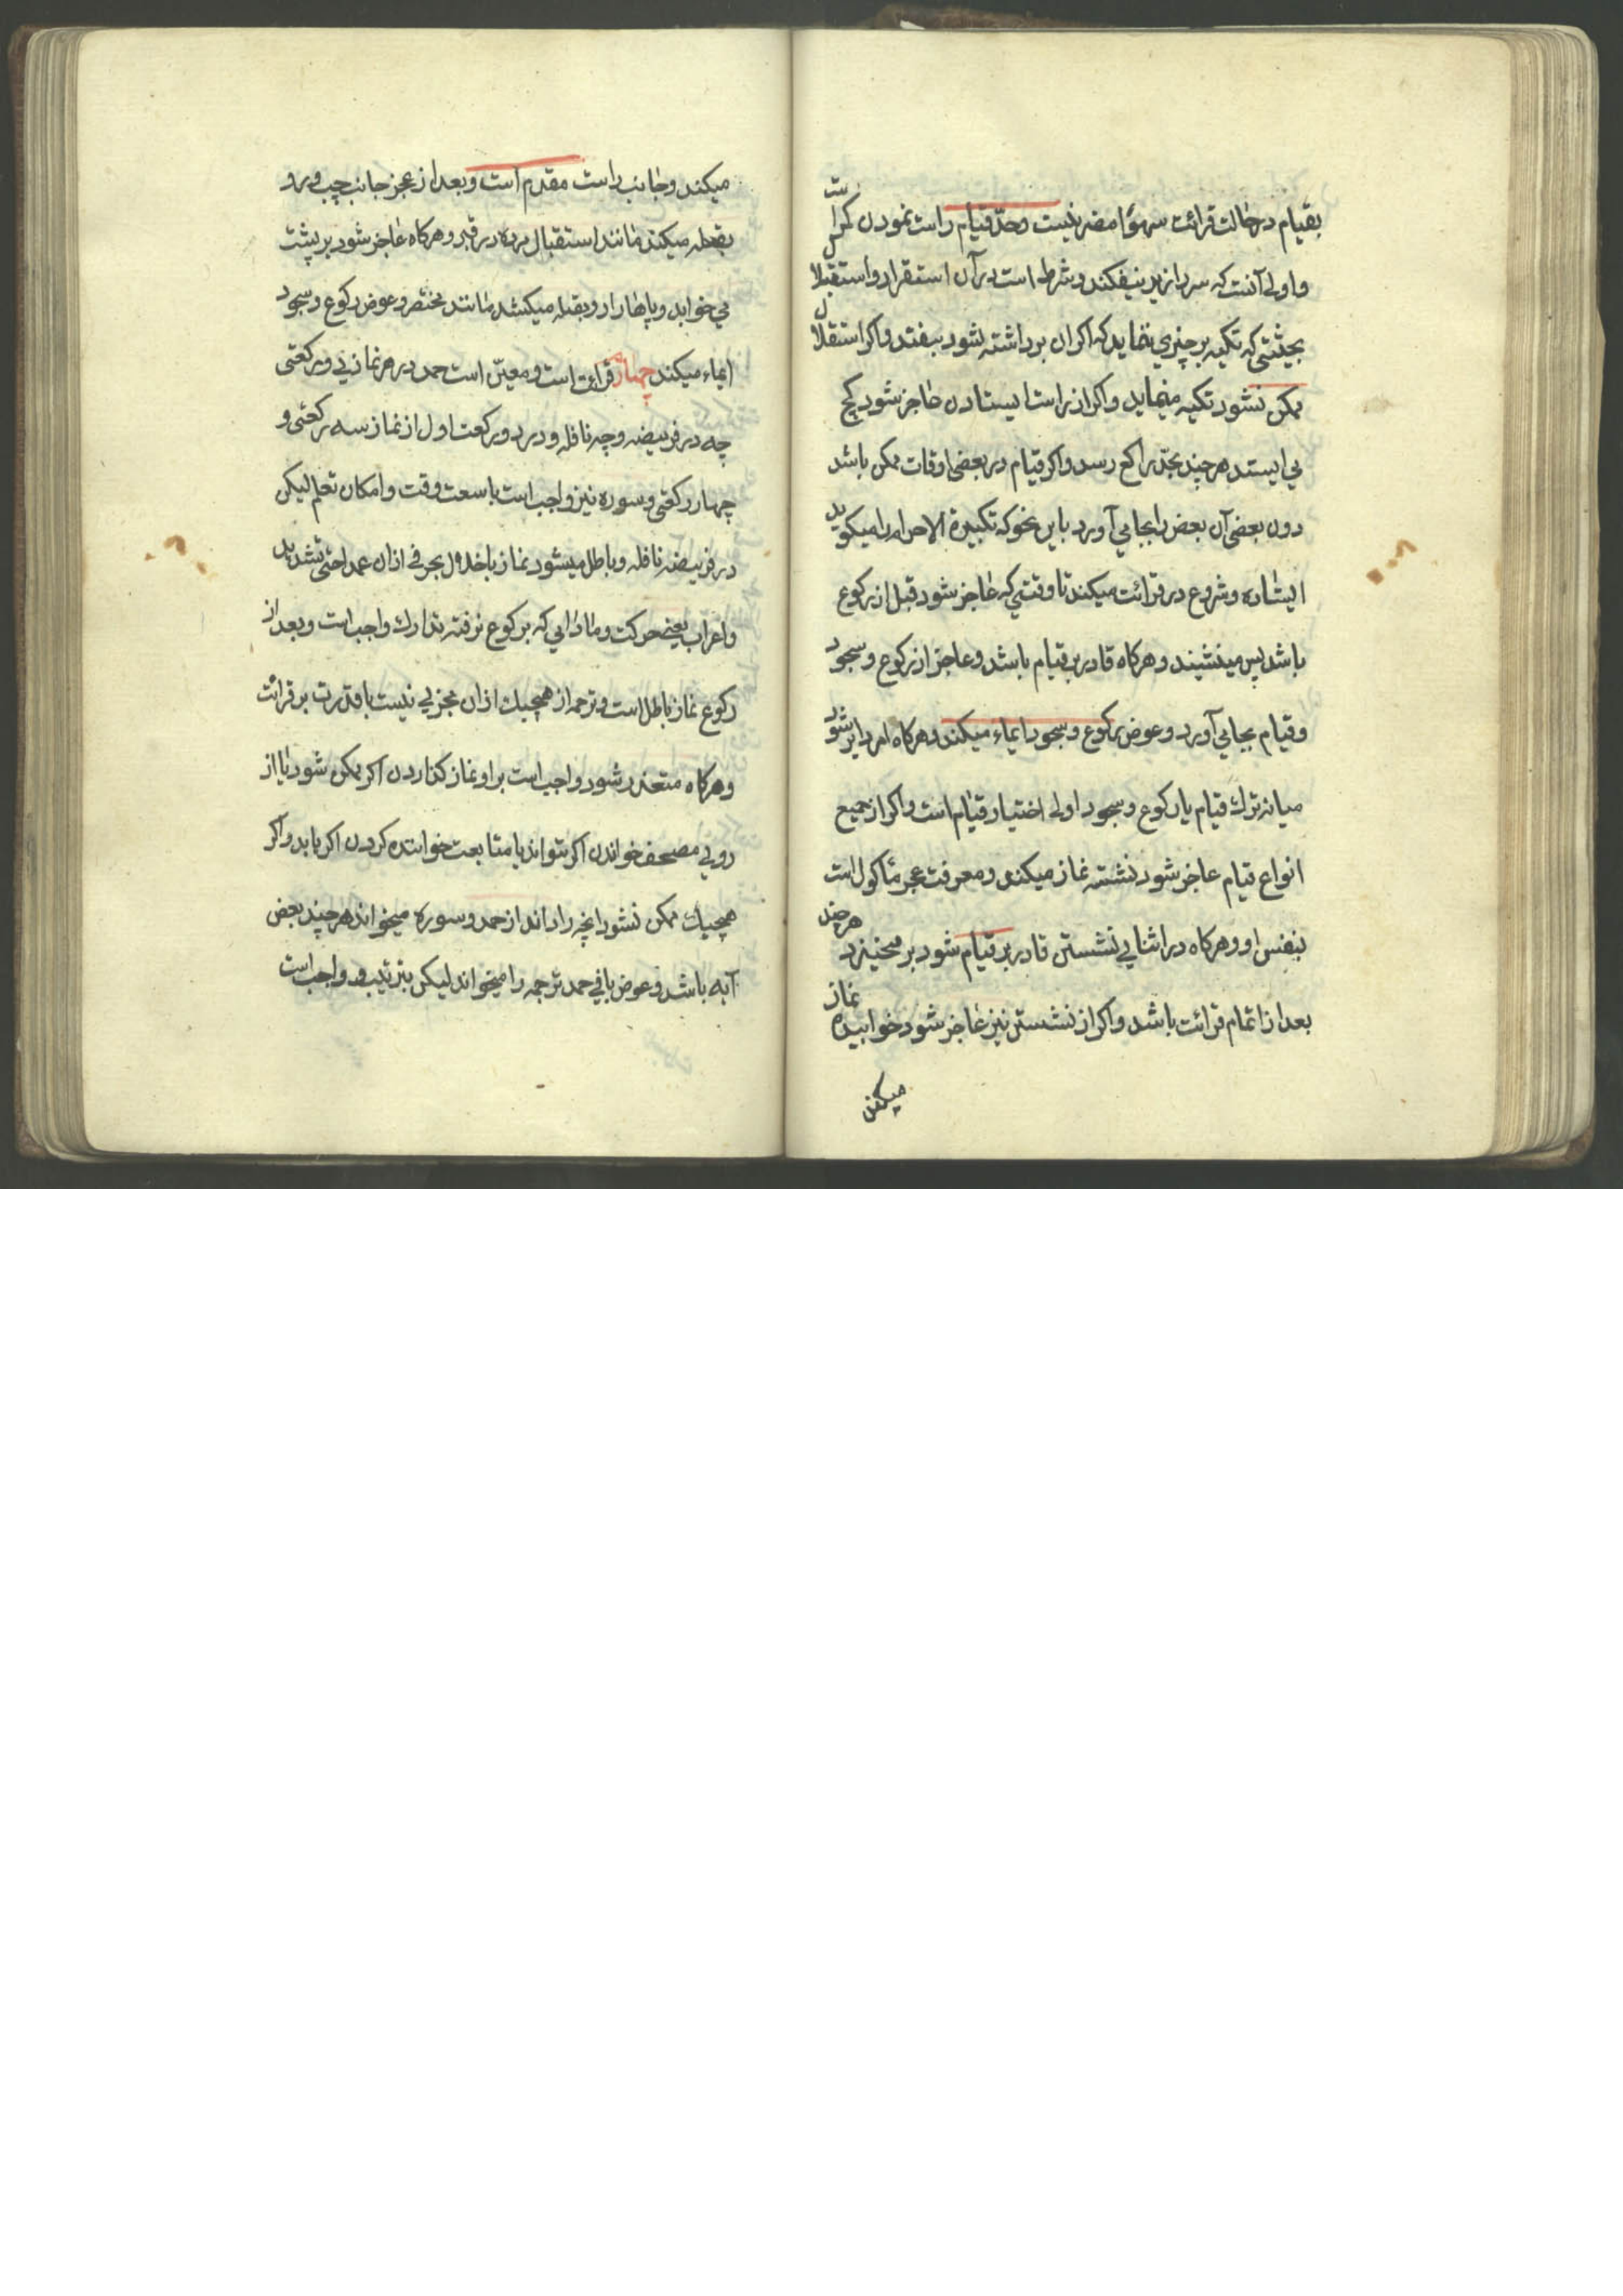 بقیام در حالت قرائت سهوًا مضر نیست و حدّ قیام راست نمودن کمر است
و اولی آنست که سر را زیر نیفکند و شرط است در آن استقرار و استقلال
بحیثیتی که تکیه بر چیزي ننماید که اکر ان برداشته شود بیفتد و اکر استقلال
ممکن نشود تکیه مینماید و اکر از راست ایستادن عاجز شود کج
می ایستد هر چند بحدّ راکع رسد و اکر قیام در بعضی اوقات ممکن باشد
دون بعضی آن بعض را بجا می آورد باین نحو که تکبیرة الاحرام را میکوید
ایستاده و شروع در قرائت میکند تا وقتی که عاجز شود قبل از رکوع
باشد پس مینشیند و هرکاه قادر بر قیام باشد و عاجز از رکوع و سجود
و قیام بجا می آورد و عوض رکوع و سجود ایماء میکند و هرکاه امر دایر شود
میانه ترك قیام یا رکوع و سجود اولی اختیار قیام است و اکر از جمیع
انواع قیام عاجز شود نشسته نماز میکند و معرفت عجز موکول است
بنفس او و هرکاه در اثنای نشستن قادر بر قیام شود بر میخیزد هر چند
بعد از اتمام قرائت باشد و اکر از نشستن نیز عاجز شود خوابیده نماز
میکند
میکند و جانب راست مقدم است و بعد از عجز جانب چپ و رو
بقبله میکند مانند استقبال مرده در قبر و هرکاه عاجز شود بر پشت
می خوابد و پاها را رو بقبله میکشد مانند محتضر و عوض رکوع و سجود
ایماء میکند چهارم قرائت است و معیّن است حمد در هر نمازی دو رکعتی
چه در فریضه و چه نافله و در دو رکعت اول از نماز سه رکعتی و
چهار رکعتی و سوره نیز واجب است با سعت وقت و امکان تعلم لیکن
در فریضه نه نافله و باطل میشود نماز باخلال بحرفی از ان عمدا حتی تشدید
و اعراب یعنی حرکت و مادامی که برکوع نرفته تدارك واجب است و بعد از
رکوع نماز باطل است و ترجمه از هیچیك از ان مجزی نیست با قدرت بر قرائت
و هرکاه متعذر شود واجب است بر او نماز کذاردن اکر ممکن شود یا از
روی مصحف خواندن اکر بتواند یا متابعت خواننده کردن اکر یابد و اکر
هیچیك ممکن نشود انچه را داند از حمد و سوره میخواند هر چند بعض
آیه باشد و عوض باقی حمد ترجمه را میخواند لیکن بترتیب و واجب است